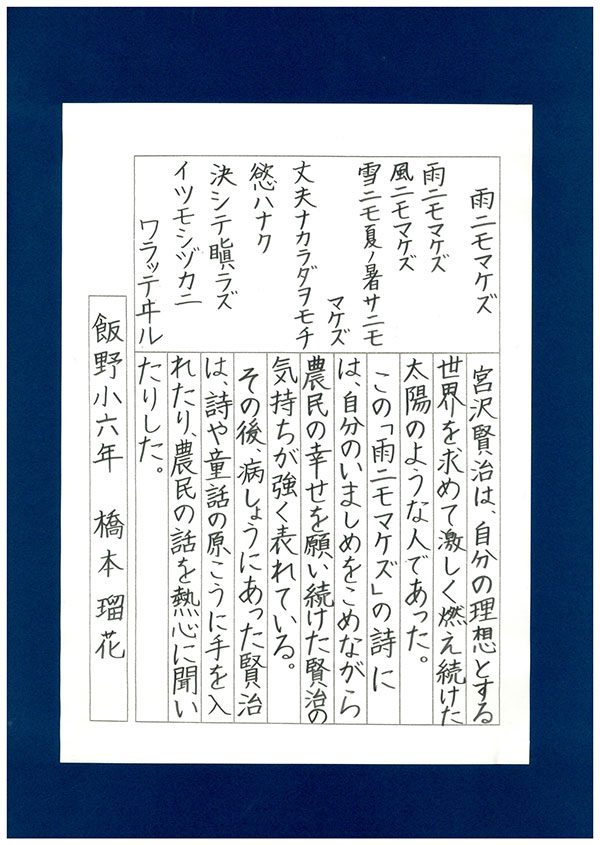 雨ニモマケズ
雨ニモマケズ
風ニモマケズ
雪ニモ夏ノ暑サニモ
マケズ
丈夫ナカラダヲモチ
慾ハナク
決シテ瞋ラズ
イツモシヅカニ
ワラッテヰル
宮沢賢治は、自分の理想とする
世界を求めて激しく燃え続けた
太陽のような人であった。
この「雨ニモマケズ」の詩に
は、自分のいましめをこめながら
農民の幸せを願い続けた賢治の
気持ちが強く表れている。
その後、病しょうにあった賢治
は、詩や童話の原こうに手を入
れたり、農民の話を熱心に聞い
たりした。
飯野小六年 橋本瑠花